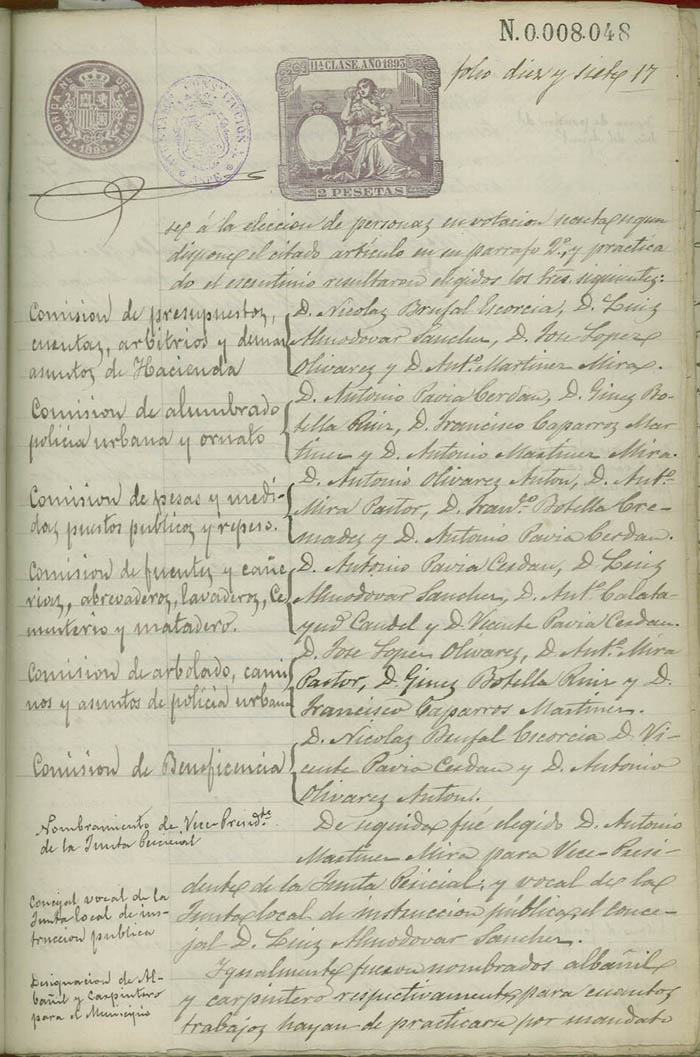 N.0.008.048
11ª CLASE. AÑO 1893
2 PESETAS
FABRICA NAL DEL TIMBRE
1893
CONSTITUCIONAL
ASPE
folio diez y siete 17
se á la eleccion de personas en votacion secreta segun
dispone el citado artículo en su parrafo 2º, y practica
do el escrutinio resultaron elegidos los tres siguientes:
Comision de presupuestos,
cuentas, arbitrios y demas
asuntos de Hacienda
D. Nicolas Brufal Escorcia, D. Luis
Almodovar Sanchez, D. Jose Lopez
Olivarez y D. Antº Martinez Mira.
Comision de alumbrado
policia urbana y ornato
D. Antonio Pavia Cerdan, D. Gines Bo-
tella Ruiz, D. Francisco Caparros Mar
tinez y D. Antonio Martinez Mira.
Comision de pesas y medi-
das, puestos publicos y repeso.
D. Antonio Olivares Anton, D. Antº
Mira Pastor, D. Franº Botella Cre-
mades y D. Antonio Pavia Cerdan.
Comision de fuentes y cañe
rias, abrevaderos, lavaderos, Ce
menterio y matadero.
D. Antonio Pavia Cerdan, D. Luis
Almodovar Sanchez, D. Antº Calata-
yud Candel y D. Vicente Pavia Cerdan.
Comision de arbolado, cami
nos y asuntos de policia urbana
D. Jose Lopez Olivarez, D. Antº Mira
Pastor, D. Gines Botella Ruiz y D.
Francisco Caparros Martinez.
Comision de Beneficencia
D. Nicolas Brufal Escorcia D. Vi-
cente Pavia Cerdan y D. Antonio
Olivarez Anton.
Nombramiento de Vice-Presidte
de la Junta Pericial
De seguida fué elegido D. Antonio
Martinez Mira para Vice-Presi-
dente de la Junta Pericial; y vocal de la
Junta local de instruccion pública, el conce-
jal D. Luis Almodovar Sanchez.
Concejal vocal de la
Junta local de ins-
truccion publica
Designacion de Al-
bañil y Carpintero
para el Municipio
Igualmente fueron nombrados albañil
y carpintero respectivamente para cuantos
trabajos hayan de practicarse por mandato